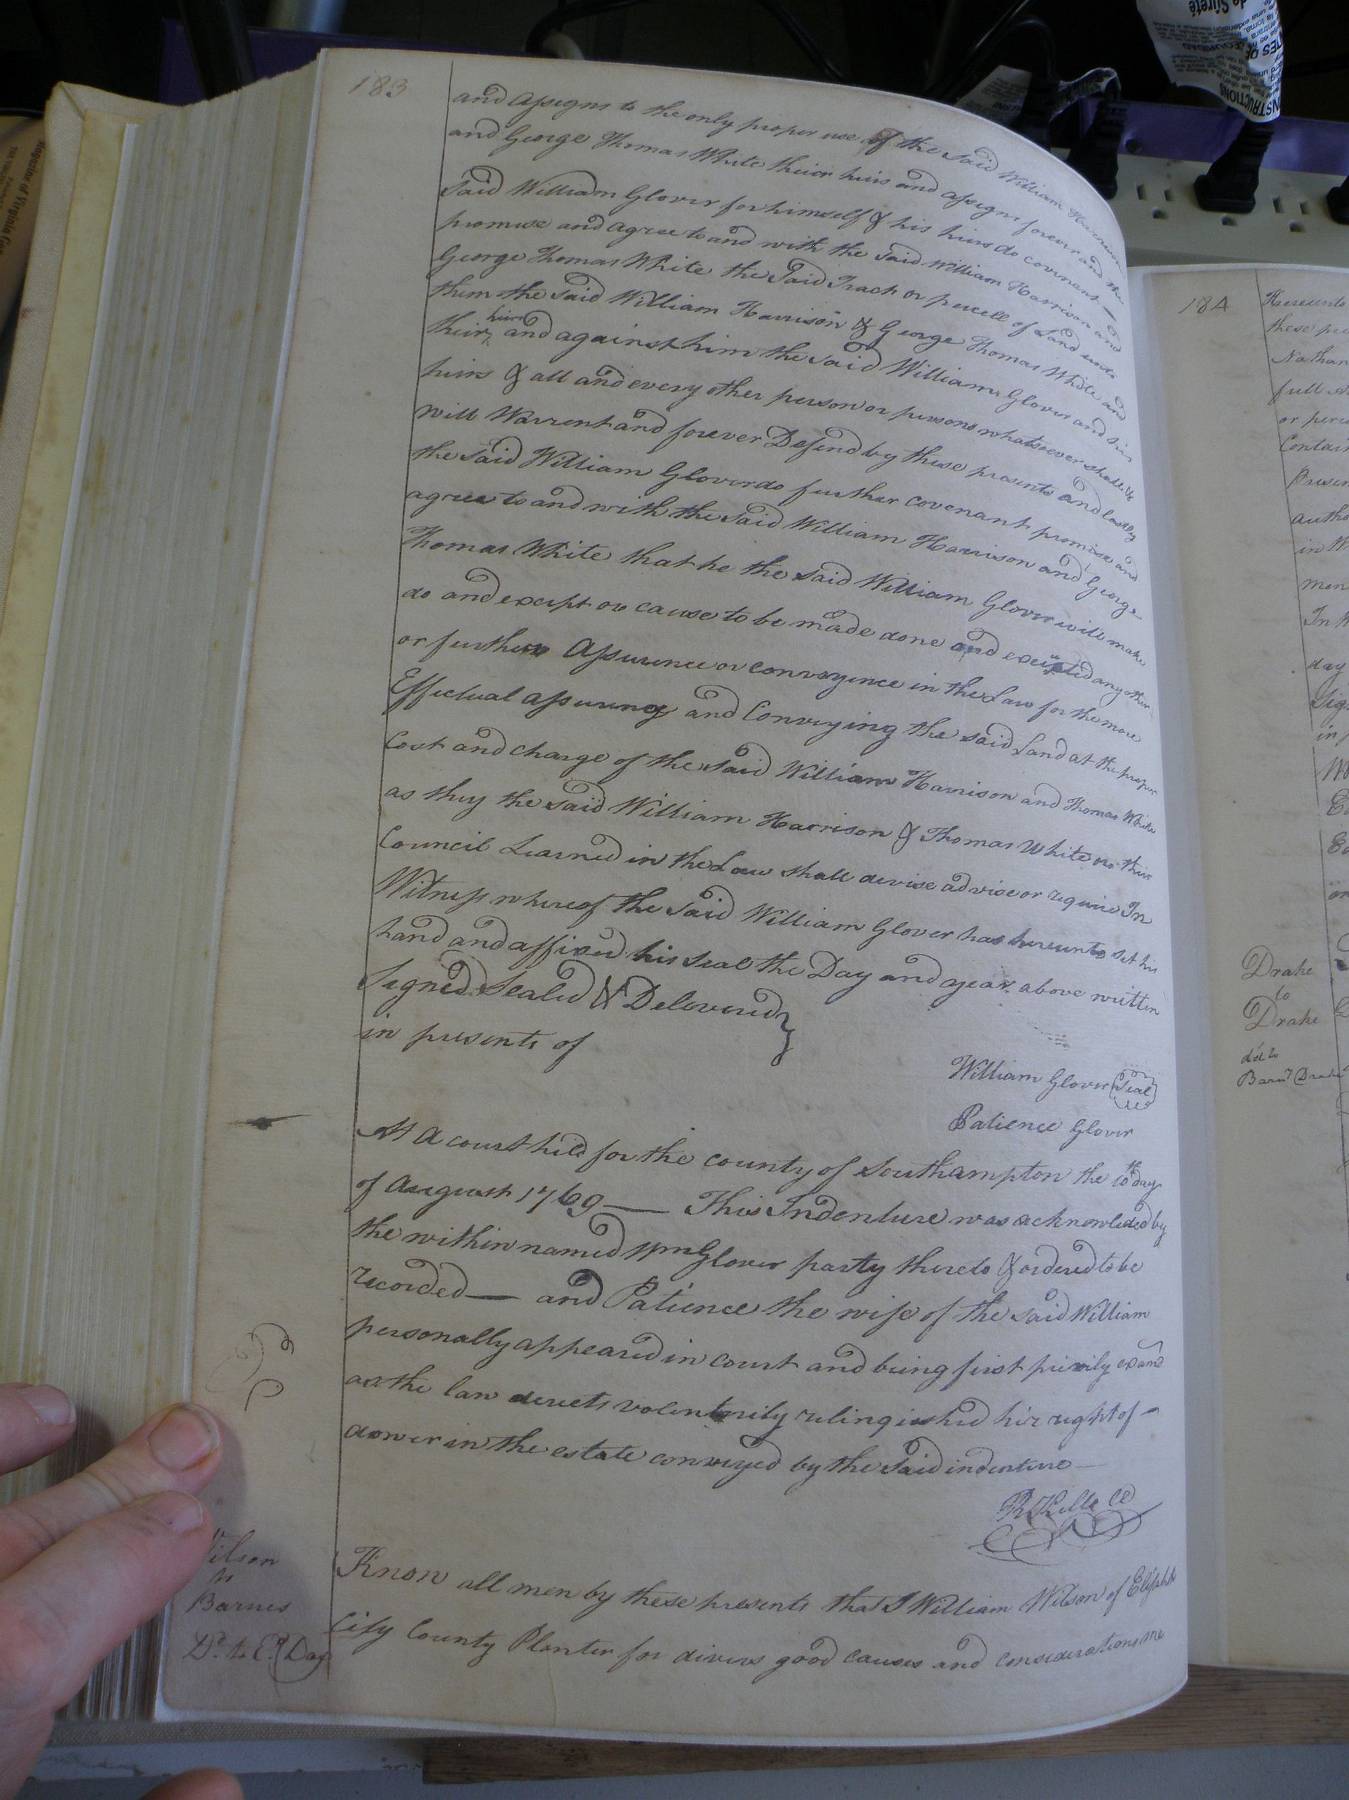 183
and assigns to the only proper use of the Said William Harrison
and George Thomas White their hiirs and assigns forever and the
Said William Glover for himself & his hiirs do covenant
promise and agree to and with the said William Harrison and
George Thomas White the Said Tract or percell of Land unto
them the Said William Harrison & George Thomas White and
their hiirs and against him the said William Glover and his
hiirs & all and every other person or persons whatsoever shall &
will Warrent and forever Defend by these presents and lastly
the Said William Glover do further covenant promise and
agree to and with the Said William Harrison and George
Thomas White that he the said William Glover will make
do and execpt or cause to be made done and executed any other
or further Assurence or convayence in the Law for the more
Effectual assureing and Conveying the said Land at the proper
Cost and charge of the said William Harrison and Thomas White
as they the said William Harrison & Thomas White or their
Council Learned in the Law shall devise advise or require In
Witness whereof the Said William Glover has hereunto set his
hand and affixed his seal the Day and year above written
Signed Sealed & Delovered
in presents of
William Glover Seal
Patience Glover
At A court held for the county of Southampton the 10th day
of August 1769 — This Indenture was acknowleded by
the within named Wm Glover party thereto & ordered to be
recorded — and Patience the wife of the said William
personally appeared in court and being first privily exam
as the law derects volentarily relinquished her right of -
dower in the estate conveyed by the Said indenture —
R Kello CC
Wilson
to
Barnes
Dd. to Ed. Day
Know all men by these presents that I William Wilson of Elizabeth
City County Planter for divers good causes and considerations me
184
these
Nathan
full
or
Contain
Presen
autho
in W
men
In W
day
Sig
in
Drake
to
Drake
dd to
Barnd Drake
INSTRUCTIONS
de Sûreté